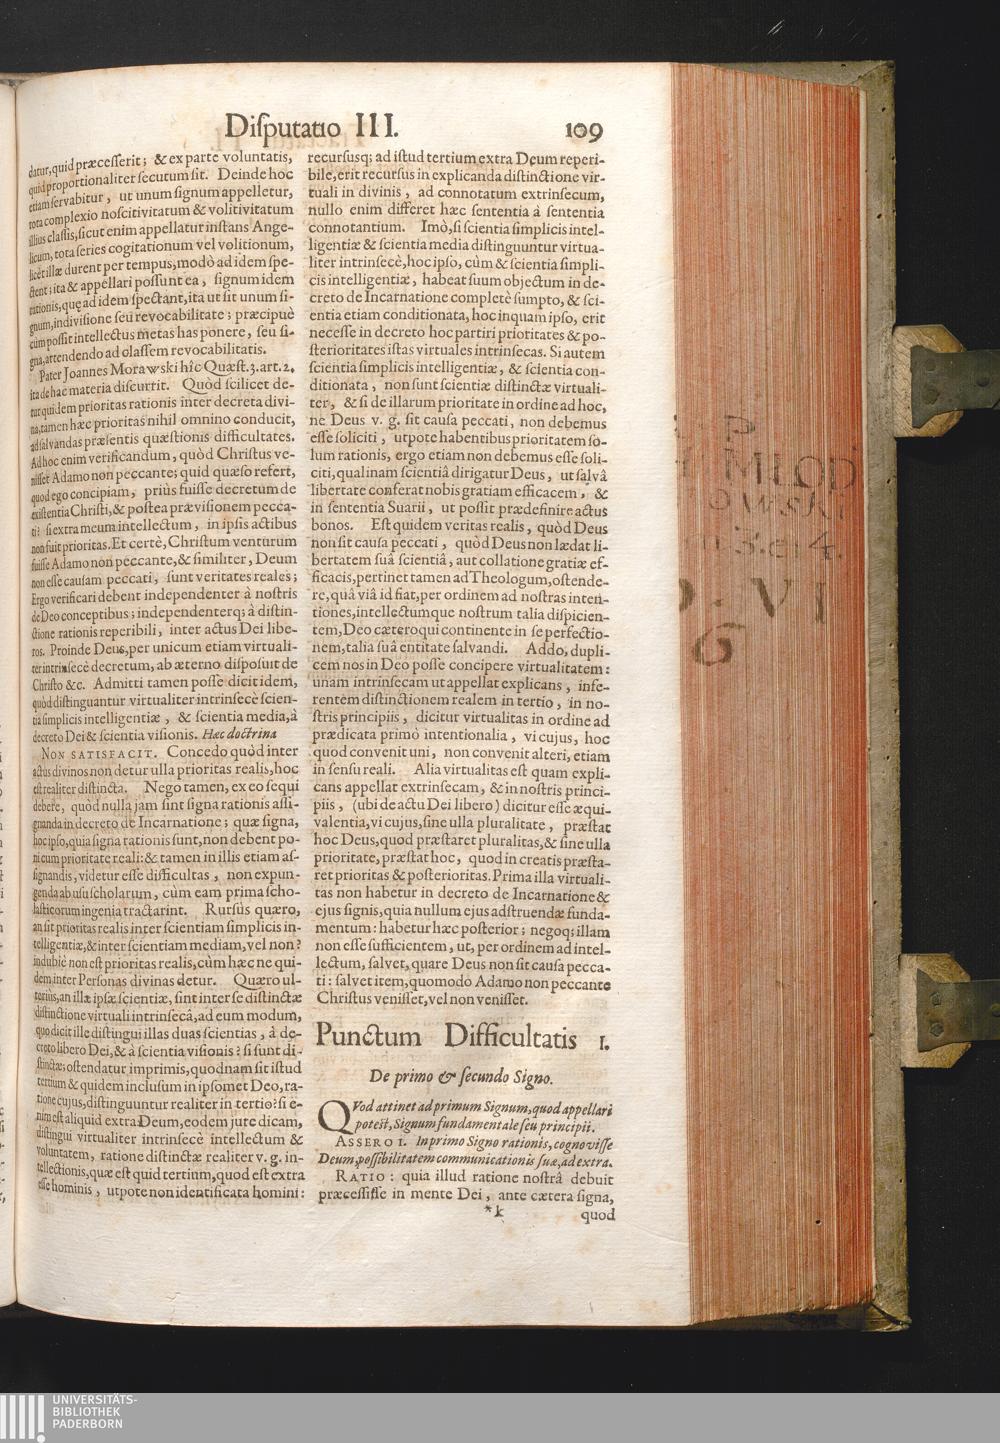 Disputatio III. 109
datur, quid præcesserit; & ex parte voluntatis,
quid proportionaliter secutum sit. Deinde hoc
etiam servabitur, ut unum signum appelletur,
tota complexio noscitivitatum & volitivitatum
illius classis, sicut enim appellatur instans Ange-
licum, tota series cogitationum vel volitionum,
licèt illæ durent per tempus, modò ad idem spe-
ctent; ita & appellari possunt ea, signum idem
rationis, quę ad idem spectant, ita ut sit unum si-
gnum, indivisione seu revocabilitate; præcipuè
cùm possit intellectus metas has ponere, seu si-
gna, attendendo ad classem revocabilitatis.
Pater Joannes Morawski hîc Quæst. 3. art. 2.
ita de hac materia discurrit. Quòd scilicet de-
tur quidem prioritas rationis inter decreta divi-
na, tamen hæc prioritas nihil omnino conducit,
ad salvandas præsentis quæstionis difficultates.
Ad hoc enim verificandum, quòd Christus ve-
nisset Adamo non peccante; quid quæso refert,
quod ego concipiam, priùs fuisse decretum de
existentia Christi, & postea prævisionem pecca-
ti? si extra meum intellectum, in ipsis actibus
non fuit prioritas. Et certè, Christum venturum
fuisse Adamo non peccante, & similiter, Deum
non esse causam peccati, sunt veritates reales;
Ergo verificari debent independenter à nostris
de Deo conceptibus; independenterq; à distin-
ctione rationis reperibili, inter actus Dei libe-
ros. Proinde Deus, per unicum etiam virtuali-
ter intrinsecè decretum, ab æterno disposuit de
Christo &c. Admitti tamen posse dicit idem,
quòd distinguantur virtualiter intrinsecè scien-
tia simplicis intelligentiæ, & scientia media, à
decreto Dei & scientia visionis. Hæc doctrina
NON SATISFACIT. Concedo quòd inter
actus divinos non detur ulla prioritas realis, hoc
est realiter distincta. Nego tamen, ex eo sequi
debere, quòd nulla jam sint signa rationis assi-
gnanda in decreto de Incarnatione; quæ signa,
hoc ipso, quia signa rationis sunt, non debent po-
ni cum prioritate reali: & tamen in illis etiam as-
signandis, videtur esse difficultas, non expun-
genda ab usu scholarum, cùm eam prima scho-
lasticorum ingenia tractarint. Rursùs quæro,
an sit prioritas realis inter scientiam simplicis in-
telligentiæ, & inter scientiam mediam, vel non?
indubiè non est prioritas realis, cùm hæc ne qui-
dem, inter Personas divinas detur. Quæro ul-
teriùs, an illæ ipsæ scientiæ, sint inter se distinctæ
distinctione virtuali intrinsecâ, ad eum modum,
quo dicit ille distingui illas duas scientias, à de-
creto libero Dei, & à scientia visionis? si sunt di-
stinctæ; ostendatur imprimis, quodnam sit istud
tertium & quidem inclusum in ipsomet Deo, ra-
tione cujus, distinguuntur realiter in tertio? si e-
nim est aliquid extra Deum, eodem jure dicam,
distingui virtualiter intrinsecè intellectum &
voluntatem, ratione distinctæ realiter v. g. in-
tellectionis, quæ est quid tertium, quod est extra
esse hominis, utpote non identificata homini:
recursusq; ad istud tertium extra Deum reperi-
bile, erit recursus in explicanda distinctione vir-
tuali in divinis, ad connotatum extrinsecum,
nullo enim differet hæc sententia à sententia
connotantium. Imò, si scientia simplicis intel-
ligentiæ & scientia media distinguuntur virtua-
liter intrinsecè, hoc ipso, cùm & scientia simpli-
cis intelligentiæ, habeat suum objectum in de-
creto de Incarnatione completè sumpto, & sci-
entia etiam conditionata, hoc inquam ipso, erit
necesse in decreto hoc partiri prioritates & po-
sterioritates istas virtuales intrinsecas. Si autem
scientia simplicis intelligentiæ, & scientia con-
ditionata, non sunt scientiæ distinctæ virtuali-
ter, & si de illarum prioritate in ordine ad hoc,
ne Deus v. g. sit causa peccati, non debemus
esse soliciti, utpote habentibus prioritatem so-
lum rationis, ergo etiam non debemus esse soli-
citi, qualinam scientiâ dirigatur Deus, ut salvâ
libertate conferat nobis gratiam efficacem, &
in sententia Suarii, ut possit prædefinire actus
bonos. Est quidem veritas realis, quòd Deus
non sit causa peccati, quòd Deus non lædat li-
bertatem suâ scientiâ, aut collatione gratiæ ef-
ficacis, pertinet tamen ad Theologum, ostende-
re, quâ viâ id fiat, per ordinem ad nostras inten-
tiones, intellectumque nostrum talia dispicien-
tem, Deo cæteroqui continente in se perfectio-
nem, talia suâ entitate salvandi. Addo, dupli-
cem nos in Deo posse concipere virtualitatem:
unam intrinsecam ut appellat explicans, infe-
rentem distinctionem realem in tertio, in no-
stris principiis, dicitur virtualitas in ordine ad
prædicata primò intentionalia, vi cujus, hoc
quod convenit uni, non convenit alteri, etiam
in sensu reali. Alia virtualitas est quam expli-
cans appellat extrinsecam, & in nostris princi-
piis, (ubi de actu Dei libero) dicitur esse æqui-
valentia, vi cujus, sine ulla pluralitate, præstat
hoc Deus, quod præstaret pluralitas, & sine ulla
prioritate, præstat hoc, quod in creatis præsta-
ret prioritas & posterioritas. Prima illa virtuali-
tas non habetur in decreto de Incarnatione &
ejus signis, quia nullum ejus adstruendæ funda-
mentum: habetur hæc posterior; negoq; illam
non esse sufficientem, ut, per ordinem ad intel-
lectum, salvet, quare Deus non sit causa pecca-
ti: salvet item, quomodo Adamo non peccante
Christus venisset, vel non venisset.
Punctum Difficultatis 1.
De primo & secundo Signo.
QVod attinet ad primum Signum, quod appellari
potest, Signum fundamentale seu principii.
ASSERO I. In primo Signo rationis, cognovisse
Deum, possibilitatem communicationis suæ, ad extra.
RATIO: quia illud ratione nostrâ debuit
præcessisse in mente Dei, ante cætera signa,
*k quod
P
MLOD
OWSKI
3. et 4.
VI
6
UNIVERSITÄTS-
BIBLIOTHEK
PADERBORN